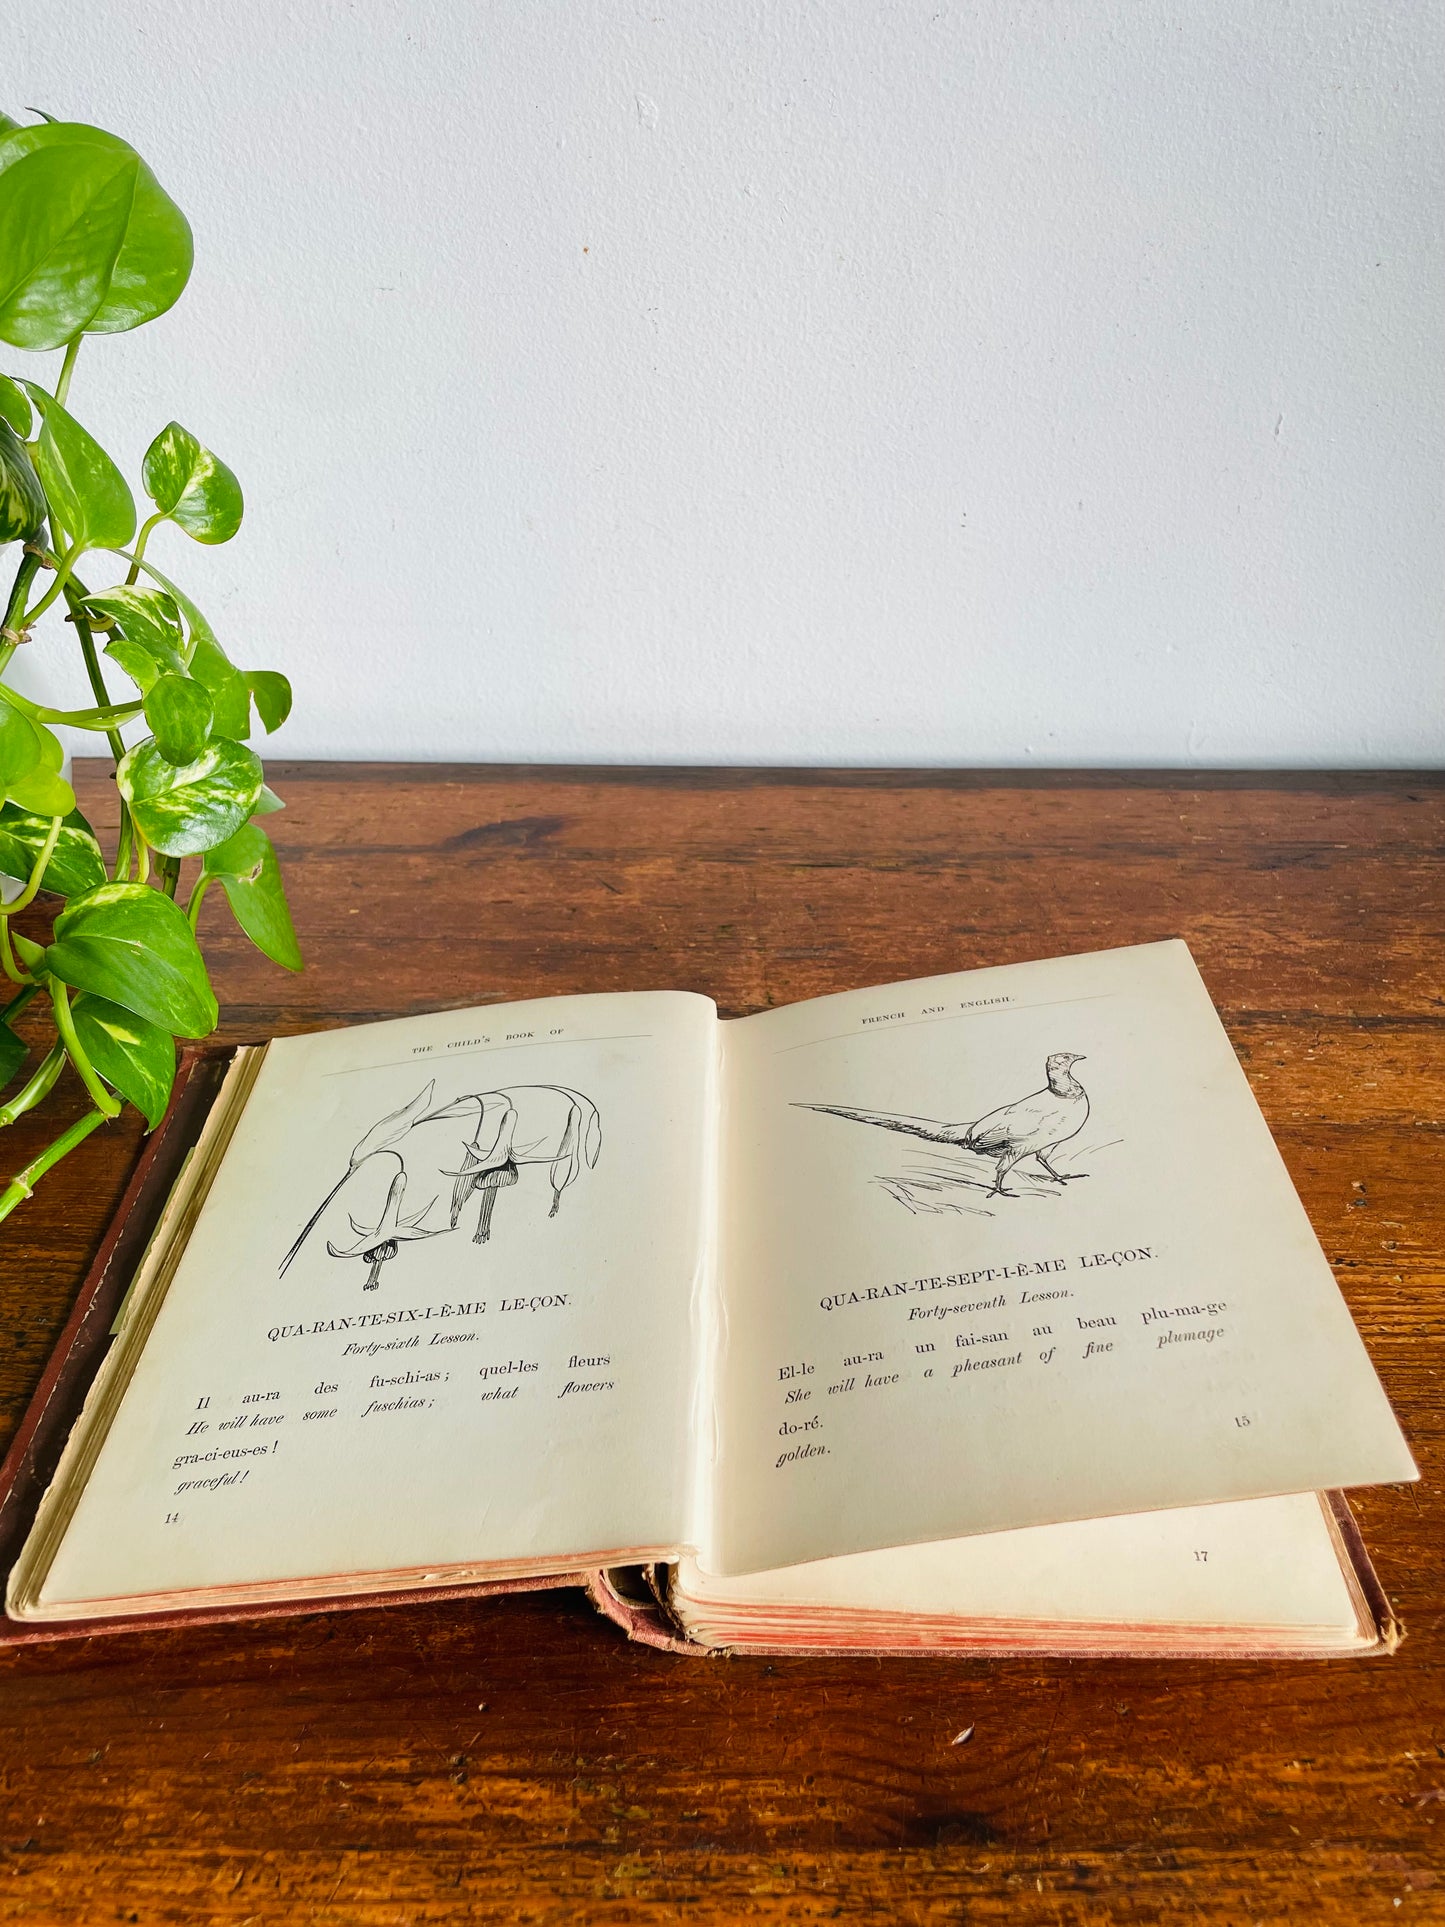 THE CHILD'S BOOK OF
QUA-RAN-TE-SIX-I-È-ME LE-ÇON.
Forty-sixth Lesson.
Il au-ra des fu-schi-as; quel-les fleurs
He will have some fuschias; what flowers
gra-ci-eus-es!
graceful!
14
FRENCH AND ENGLISH.
QUA-RAN-TE-SEPT-I-È-ME LE-ÇON.
Forty-seventh Lesson.
El-le au-ra un fai-san au beau plu-ma-ge
She will have a pheasant of fine plumage
do-ré.
golden.
15
17